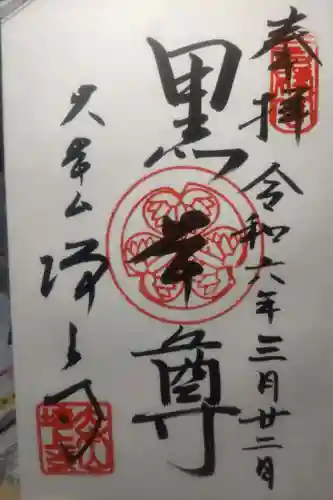 奉拝
令和六年三月廿二日
黒本尊
大本山
増上寺